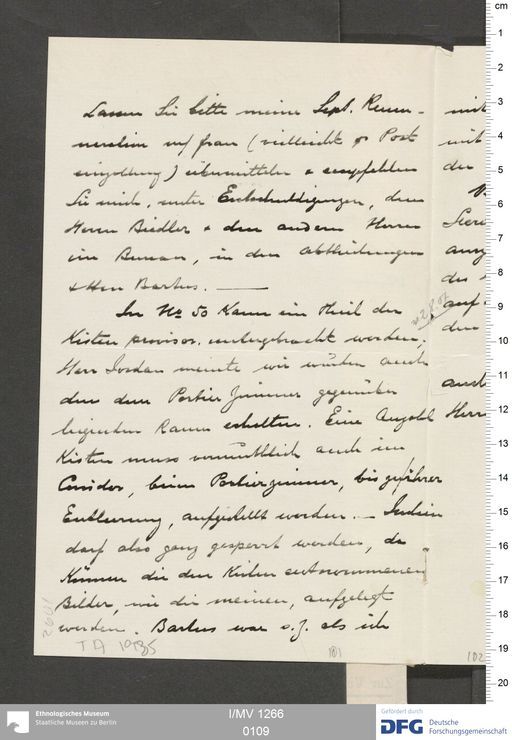 Lassen Sie bitte meine Sept. Remu-
neration m/ frau (vielleicht p Post
einzahlung) übermitteln & empfehlen
Sie mich, unter Entschuldigungen, dem
Herrn Biedler & den anderen Herren
im Bureau, in den Abtheilungen
& Herr Bartus. —
In No 50 kann ein Theil der
Kisten provisor. untergebracht werden,
Herr Jordan meinte wir würden auch
den dem Portier Zimmer gegenüber
liegenden Raum erhalten. Eine Anzahl
Kisten muss vermuthlich auch im
Corridor, beim Portierzimmer, bis zu ihrer
Entleerung, aufgestellt werden. — Indien
darf also ganz gesperrt werden, da
können die den Kisten entnommenen
Bilder, wie die meinen, aufgelegt
werden. Bartus war s.Z. als ich
mit
mit
der
des
auf
den
auch
Herr
TA 1985
101
102
cm
1
2
3
4
5
6
7
8
9
10
11
12
13
14
15
16
17
18
19
20
Ethnologisches Museum
Staatliche Museen zu Berlin
I/MV 1266
0109
Gefördert durch
DFG Deutsche
Forschungsgemeinschaft